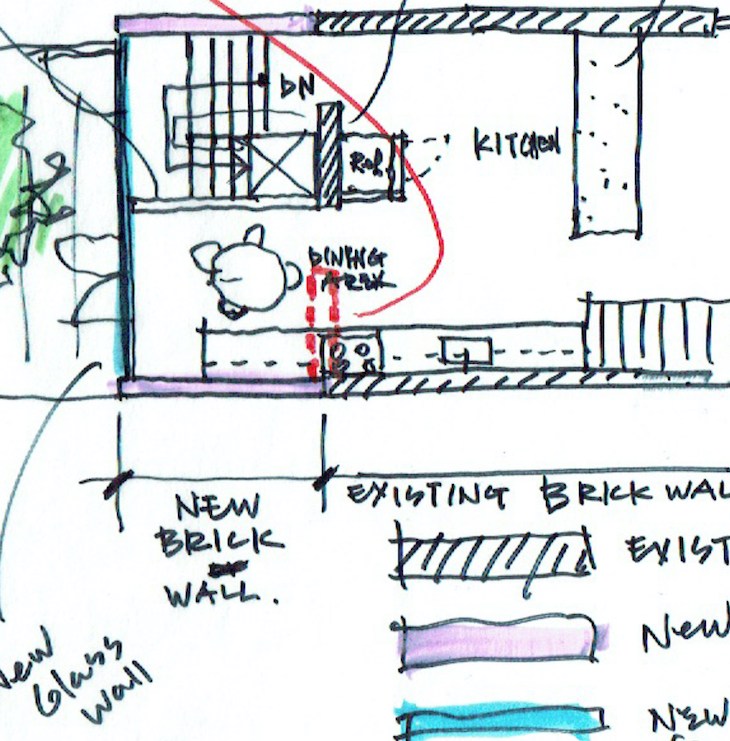 DN
KITCHEN
Ref.
DINING
AREA
NEW
BRICK
WALL.
EXISTING BRICK WAL
EXIST
NEW
New
Glass
Wall
NEW